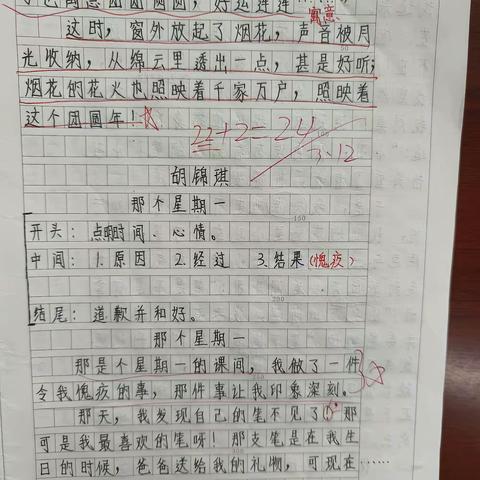 它也寓意团团圆圆,好运连连
寓意
这时,窗外放起了烟花,声音被月
光收纳,从绵云里透出一点,甚是好听;
烟花的花火也照映着千家万户,照映着
这个团圆年!
22+2=24
3.12
胡锦琪
那个星期一
150
开头:点明时间、心情。
中间:1.原因 2.经过 3.结果(愧疚)
200
结尾:道歉并和好。
那个星期一
那是个星期一的课间,我做了一件
令我愧疚的事,那件事让我印象深刻。
那天,我发现自己的笔不见了。那
可是我最喜欢的笔呀!那支笔是在我生
日的时候,爸爸送给我的礼物,可现在……